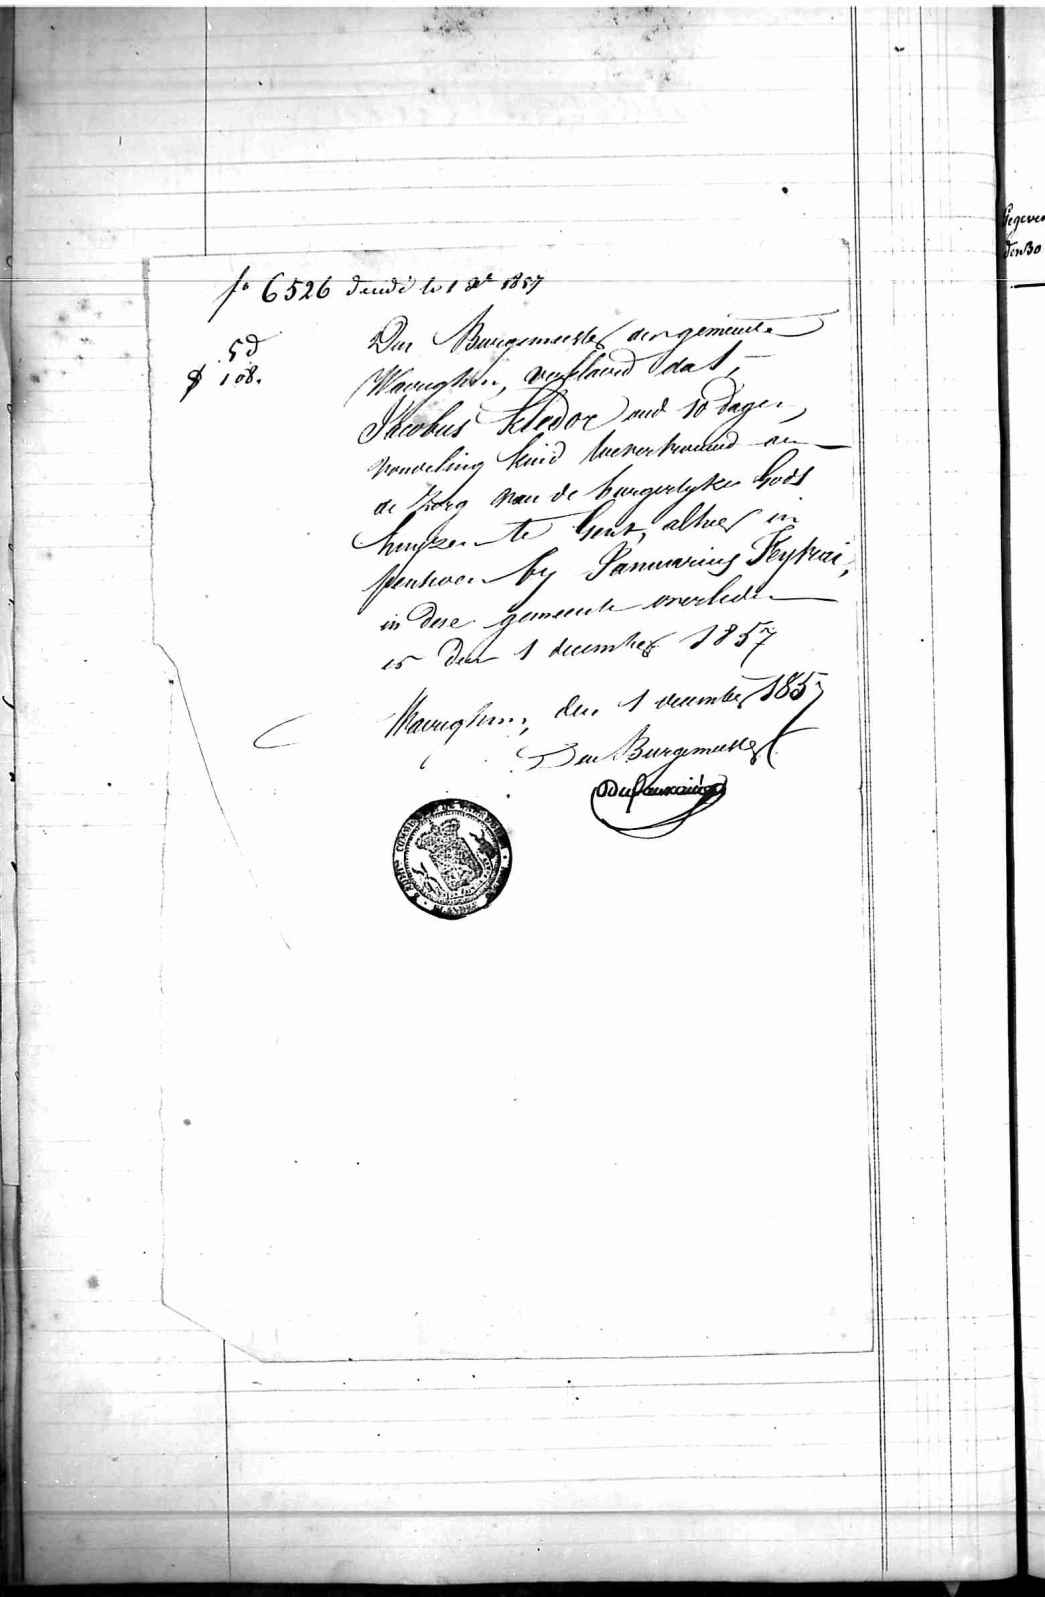 fo 6526 décédé le 1 Xbre 1857
5d
108.
Den Burgemeester der gemeente
Waereghem, verklaerd dat,
Jacobus Kledor oud 10 dagen,
vondeling kind toevertrouwd aen
de zorg van de burgerlyke Gods
huyzen te Gent, alhier in
pensioen by Januarius Feytrai,
in deze gemeente overleden
is den 1 december 1857
Waereghem, den 1 december 1857
Den Burgemeester
Gegeven
den 30